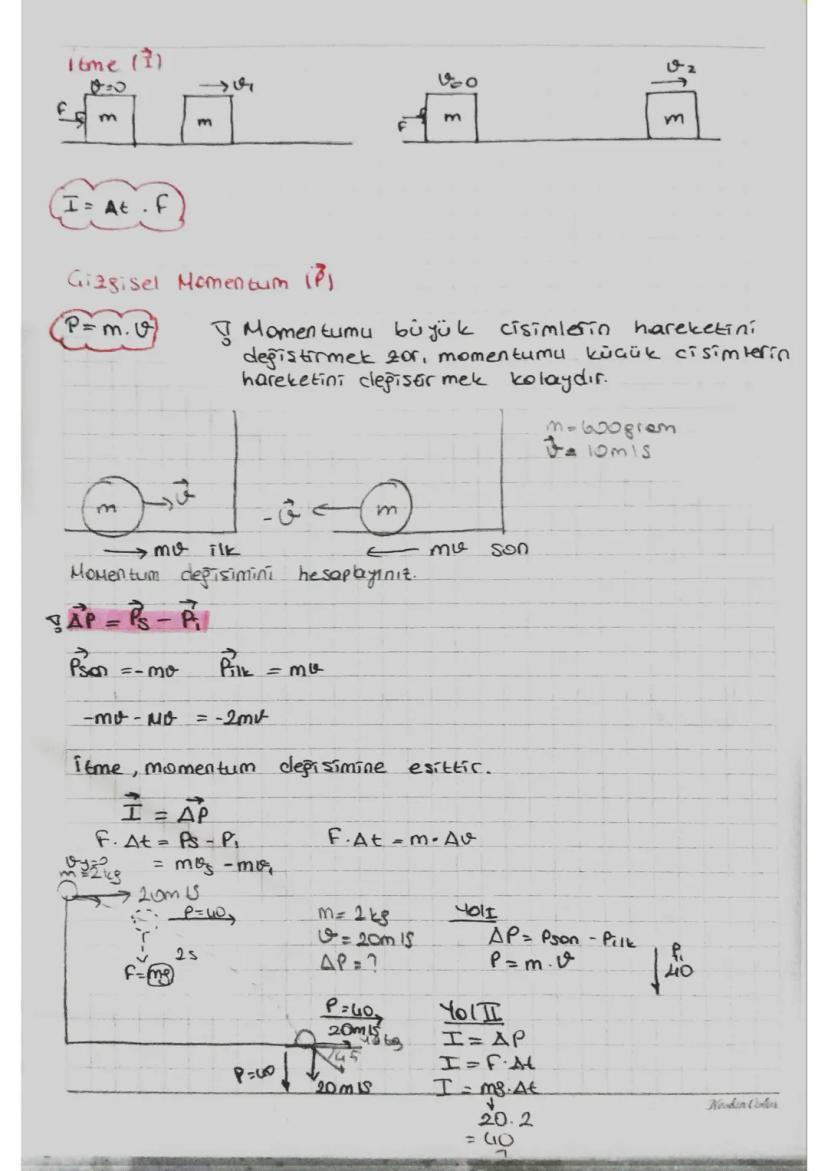 itme (I⃗)
ϑ=0 → ϑ₁ V=0 ϑ₂
F m m F m m
I = Δt . F
Çizgisel Momentum (P⃗)
P = m.ϑ Momentumu büyük cisimlerin hareketini
değiştirmek zor, momentumu küçük cisimlerin
hareketini değiştirmek kolaydır.
m=600gram
ϑ⃗ = 10m/s
m → ϑ⃗ -ϑ⃗ ← m
→ mϑ ilk ← mϑ son
Momentum değişimini hesaplayınız.
ΔP⃗ = P⃗s - P⃗i
P⃗son = -mϑ P⃗ilk = mϑ
-mϑ - mϑ = -2mϑ
itme, momentum değişimine eşittir.
I⃗ = ΔP⃗
F.Δt = Ps - Pi F.Δt = m.Δϑ
= mϑs - mϑi
ϑy=0
m=2kg
→ 20m/s
P=40 m= 2kg Yol I
ϑ = 20m/s ΔP = Pson - Pilk
2s ΔP = ? P = m.ϑ P₁
F=mg 40
P=40 Yol II
20m/s I = ΔP
45 I = F.Δt
P=40 20m/s I = mg.Δt
20.2
= 40